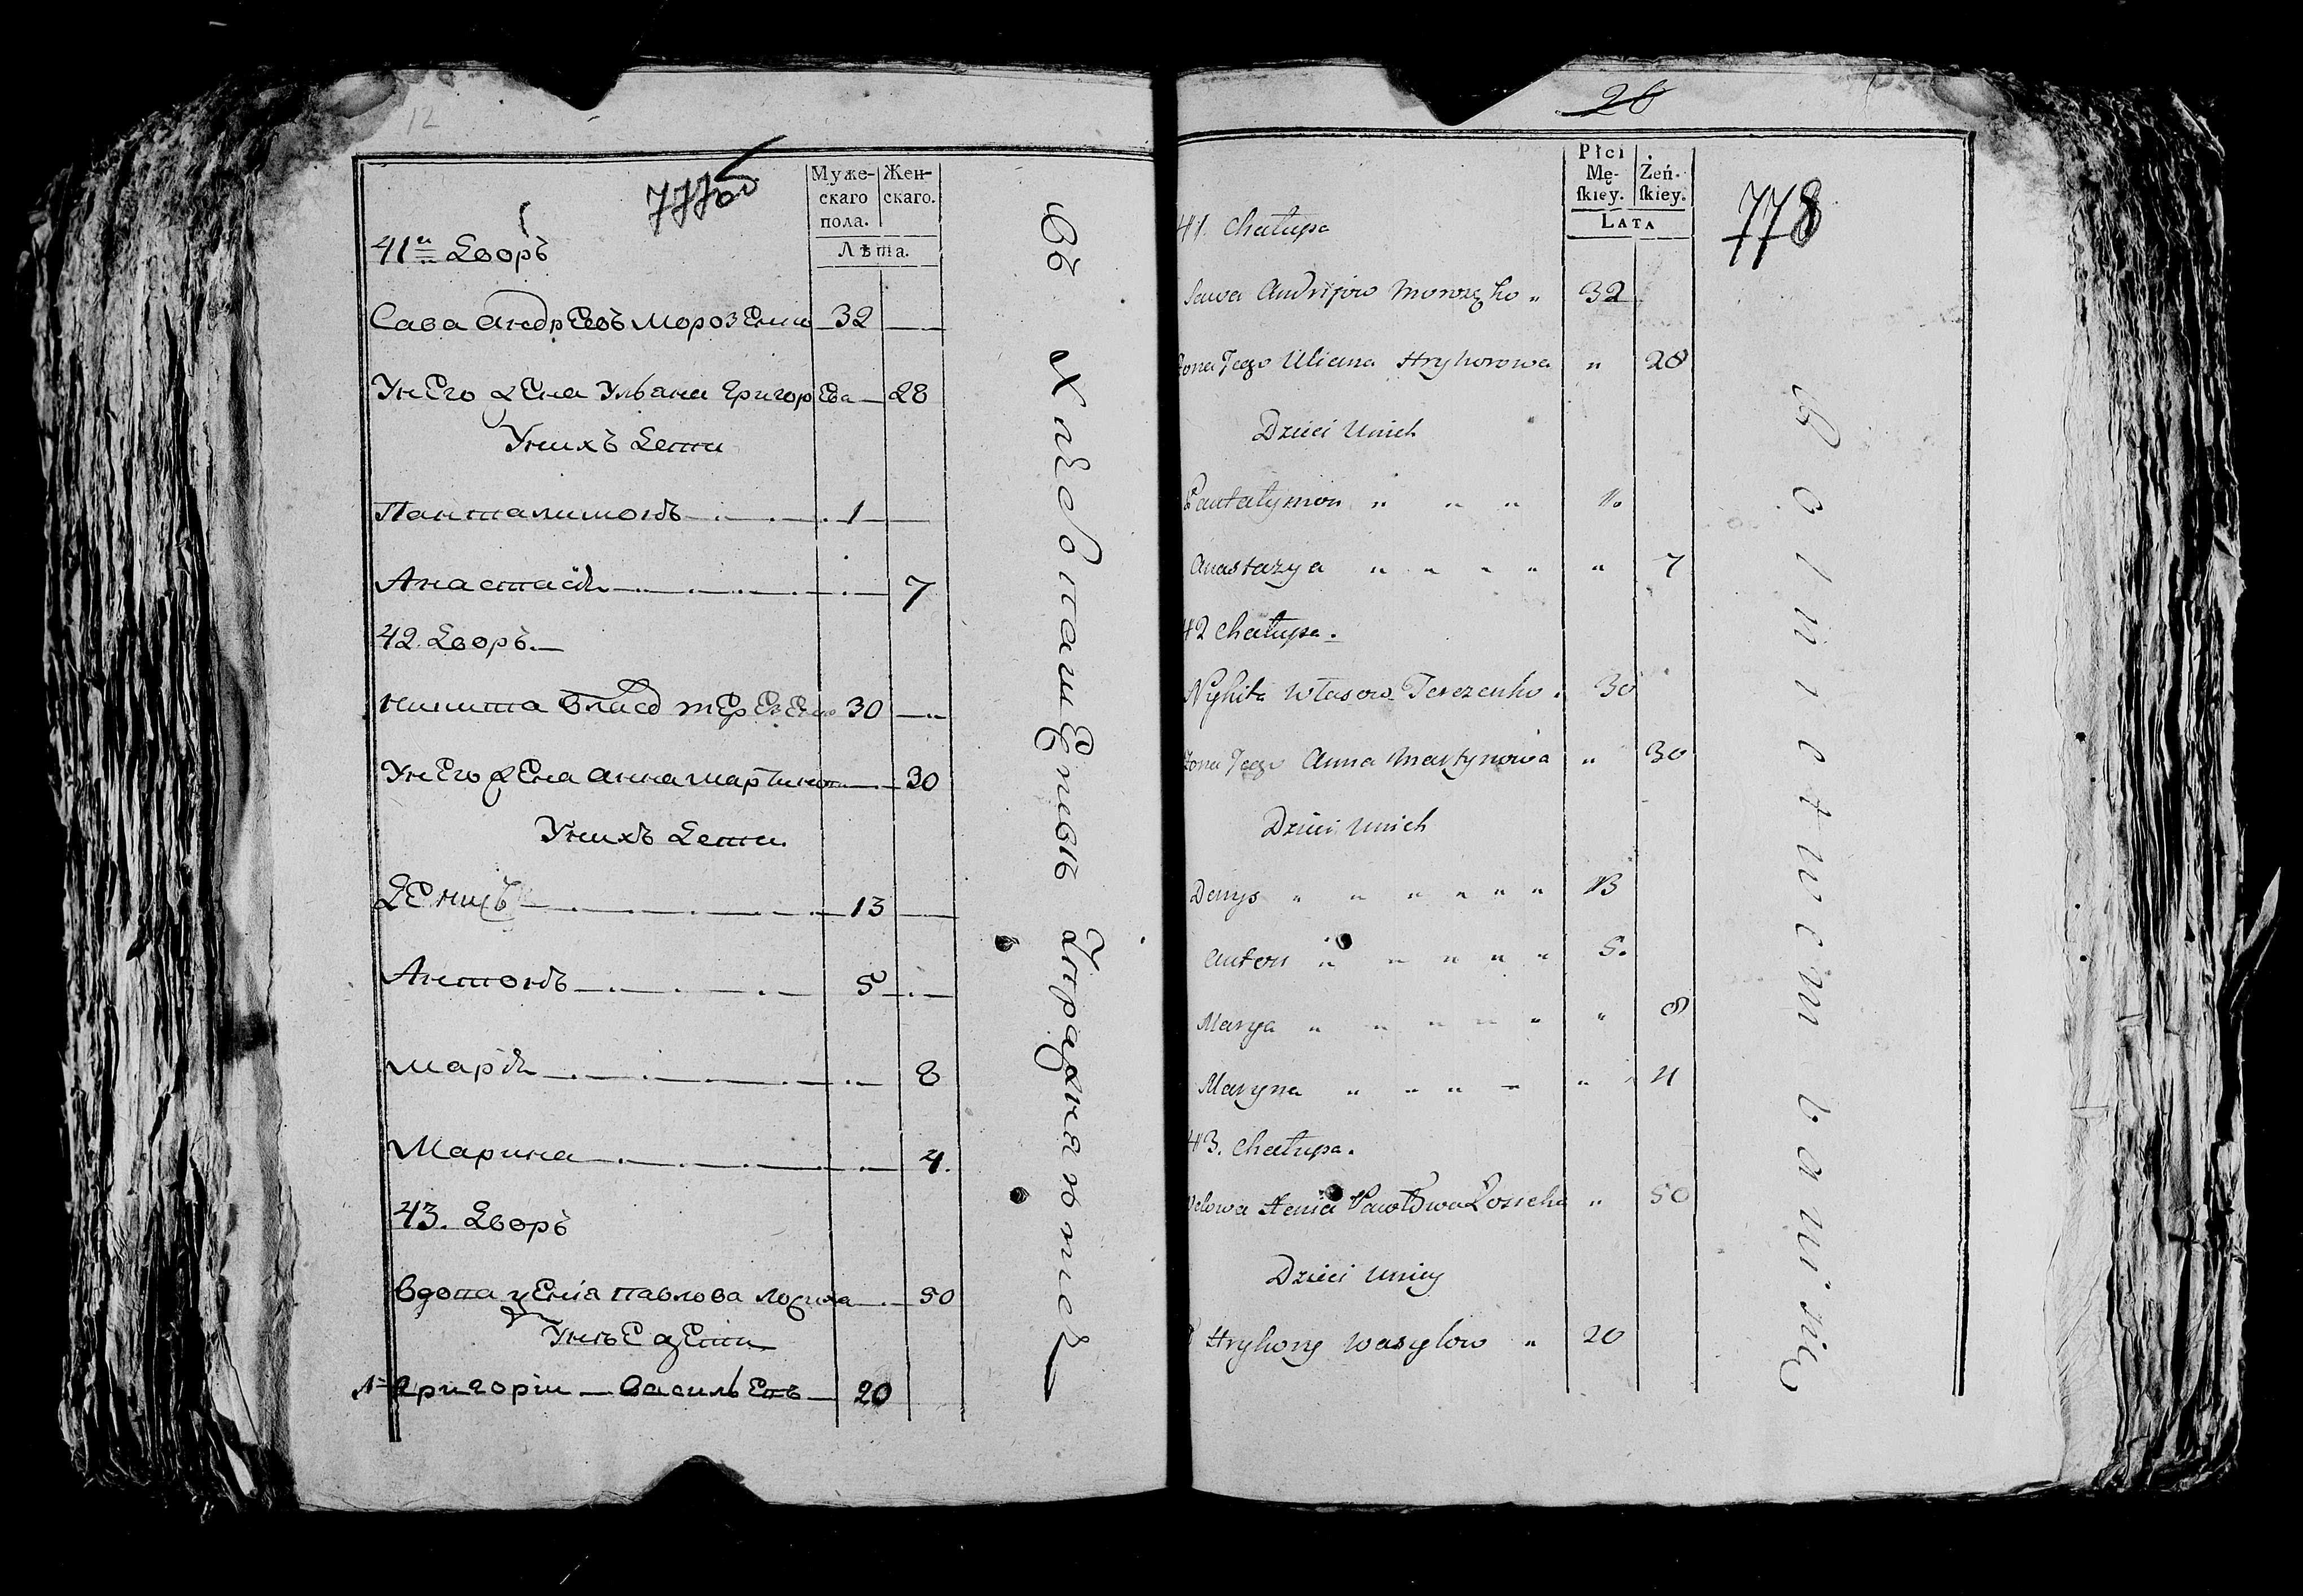 12
777об
Муже-
скаго
пола.
Жен-
скаго.
Лѣта.
41й Дворъ
Сава Андрѣевъ Морозенко 32
У него жена Ульана Григорева 28
У нихъ Дети
Панталимонъ 1
Анастасія 7
42. Дворъ.
Никита Власов Терезенко 30
У него жена Анна Мартинова 30
У нихъ Дети.
Денисъ 13
Антонъ 5
Марія 8
Марина 4.
43. Дворъ
Вдова Ксенія Павлова Лосиха 50
У нее дети
Григорій Васильевъ 20
Въ Хлебопашествѣ упражняются
26
778
Płci
Mę-
ſkiey.
Żeń-
ſkiey.
LATA
41. Chałupa
Sawa Andrijow Morozęko " 32
Żona Jego Uliana Hryhorowa " 28
Dzieci Unich
Pantalymon " " " 1.
Anastazya " " " " " 7
42 Chałupa.
Nykita Własow Terezenko. 30
Żona Jego Anna Martynowa " 30
Dzieci Unich
Denys " " " " " " 13
Anton " " " " " 5.
Marya " " " " " " 8
Maryna " " " " " 4
43. Chałupa.
Wdowa Xenia Pawłowa Łosicha " 50
Dzieci Uniey
Hryhory Wasylow " 20
Rolnictwem bawią się